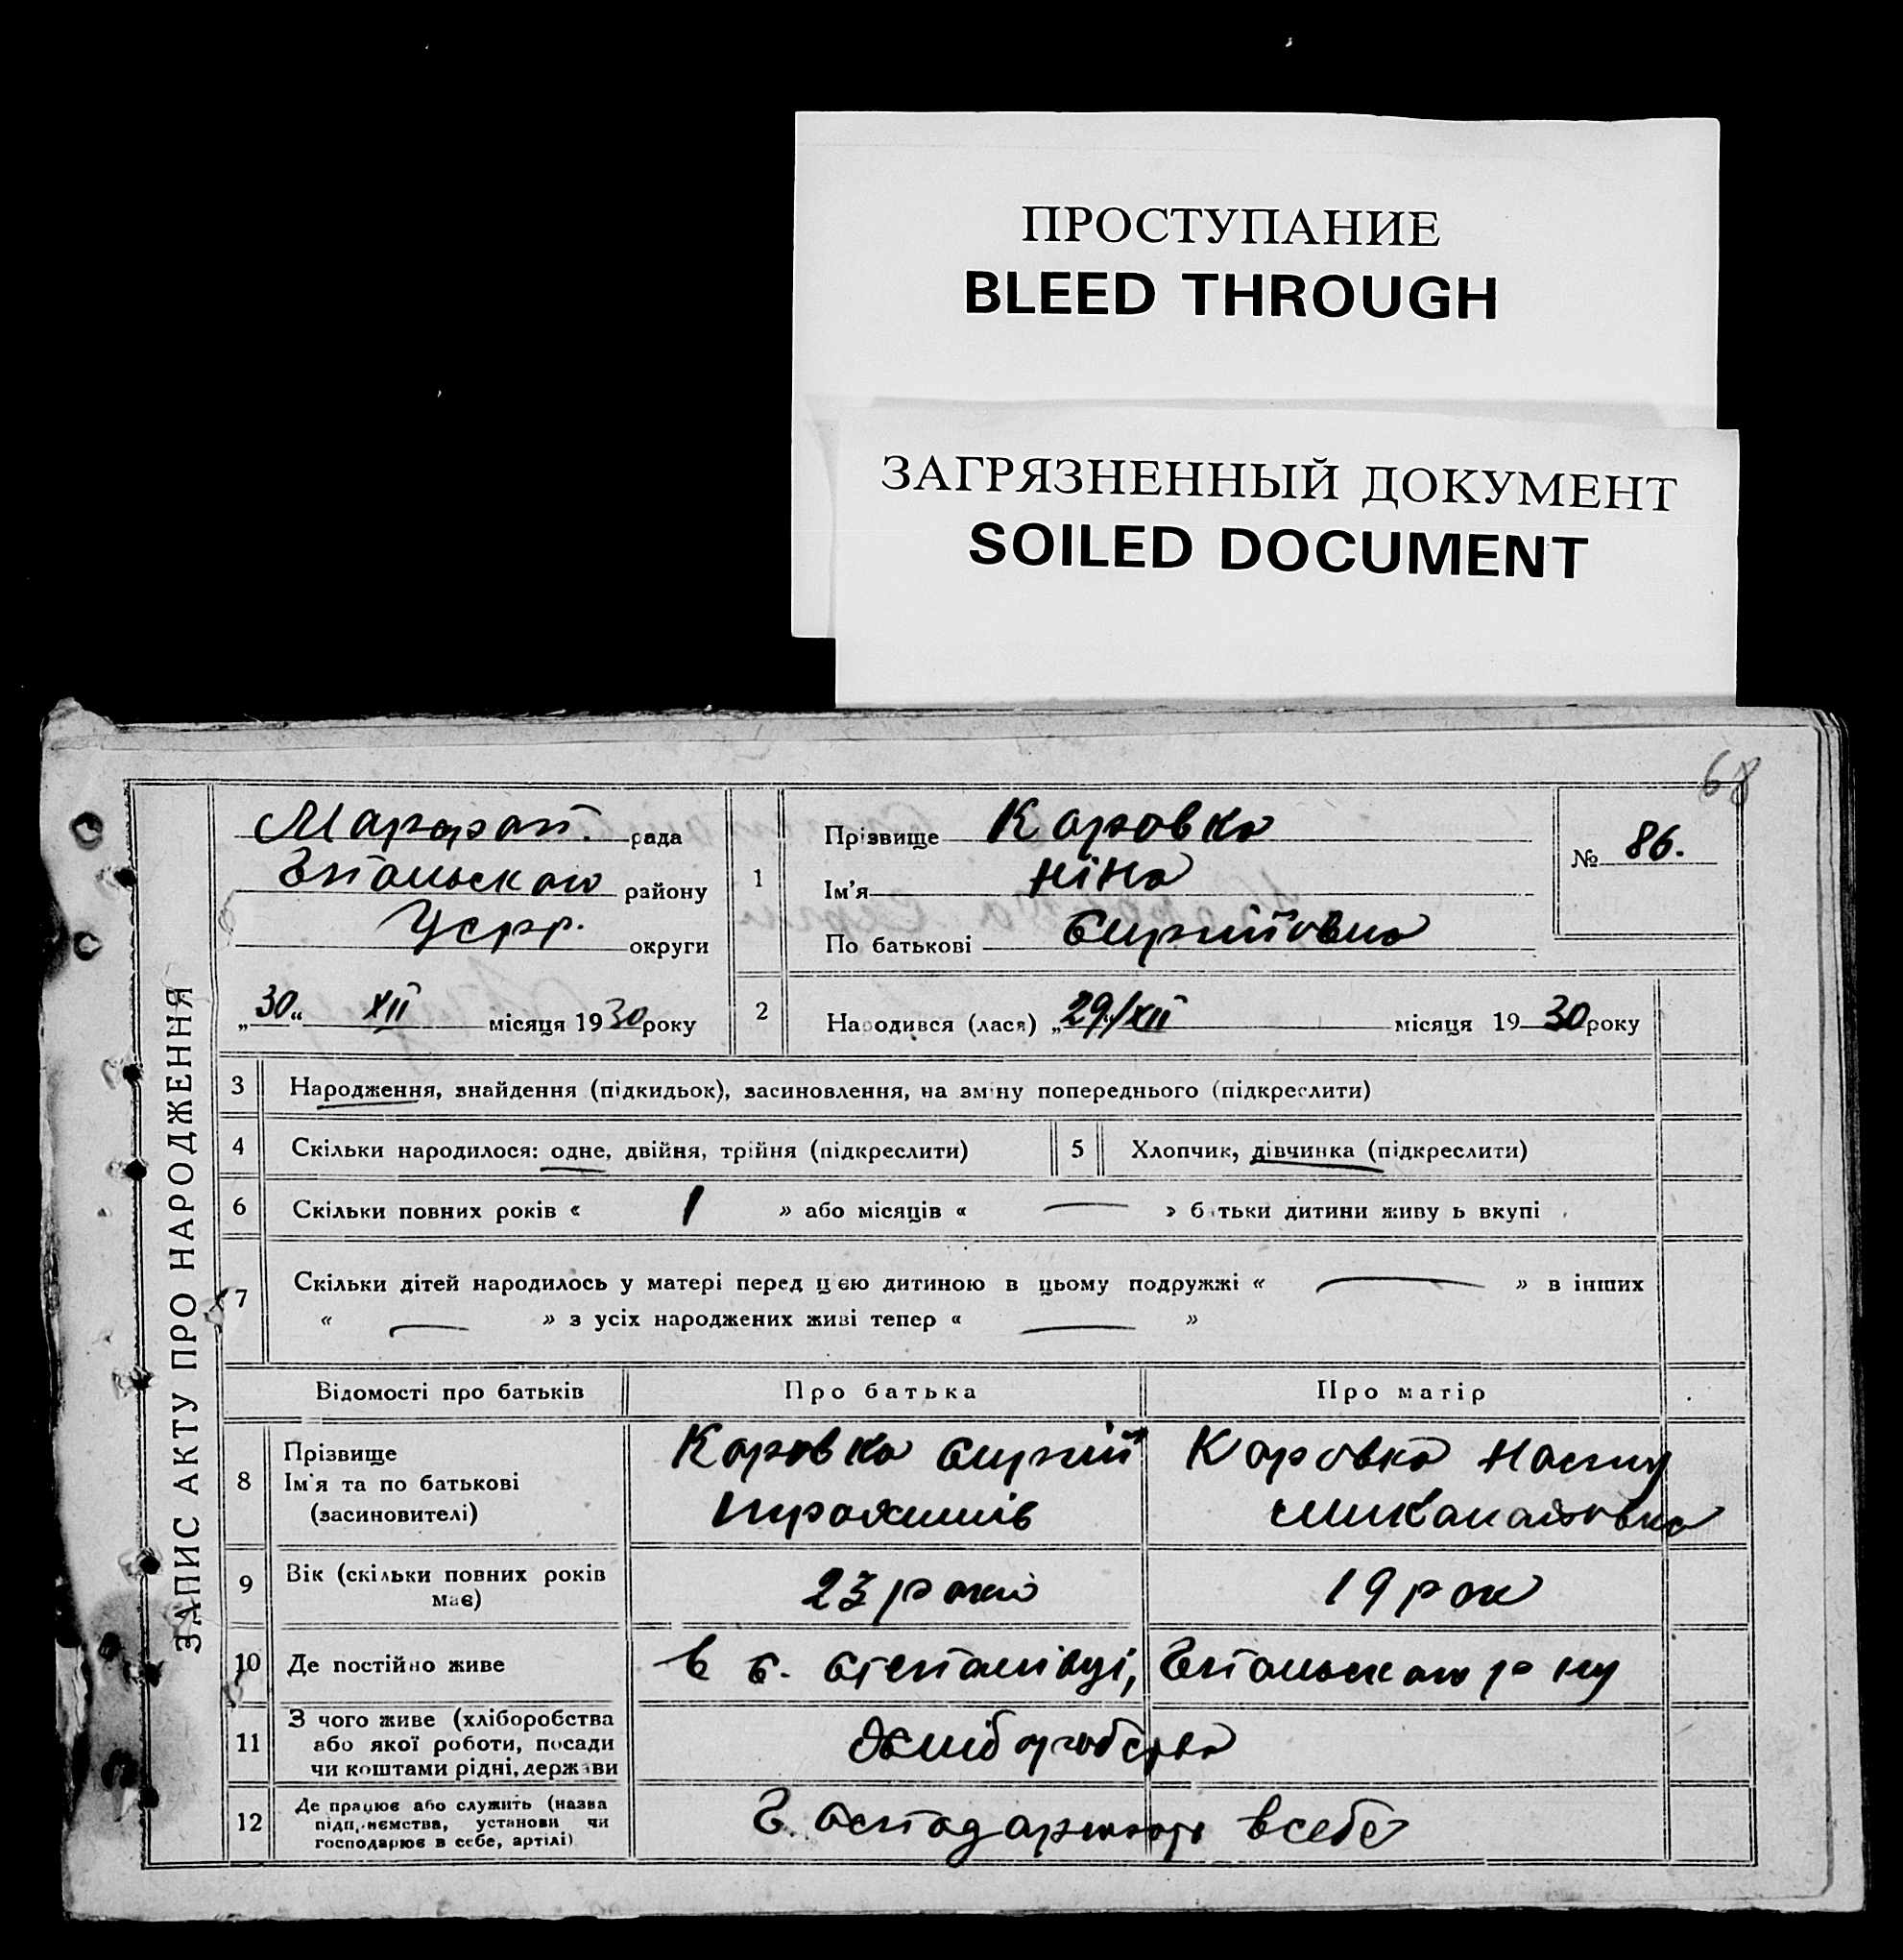 ПРОСТУПАНИЕ
BLEED THROUGH
ЗАГРЯЗНЕННЫЙ ДОКУМЕНТ
SOILED DOCUMENT
68
ЗАПИС АКТУ ПРО НАРОДЖЕННЯ
рада
району
Уср р. округи
„30“ XII місяця 1930 року
1
Прізвище Каровка
Ім'я Ніна
По батькові Сергіївна
№ 86.
2
Народився (лася) „29/XII місяця 1930 року
3 Народження, знайдення (підкидьок), засиновлення, на зміну попереднього (підкреслити)
4 Скільки народилося: одне, двійня, трійня (підкреслити)
5 Хлопчик, дівчинка (підкреслити)
6 Скільки повних років « 1 » або місяців « — » батьки дитини живуть вкупі
7 Скільки дітей народилось у матері перед цією дитиною в цьому подружжі « — » в інших
« — » з усіх народжених живі тепер « — »
Відомості про батьків
Про батька
Про матір
8
Прізвище
Ім'я та по батькові
(засиновителі)
Каровка Сергій
Каровка
9
Вік (скільки повних років
має)
23 роки
19 рок
10 Де постійно живе
в с. Степанівці, р-ну
11
З чого живе (хліборобства
або якої роботи, посади
чи коштами рідні, держави
Хліборобства
12
Де працює або служить (назва
підприємства, установи чи
господарює в себе, артілі)
Господарюють в себе